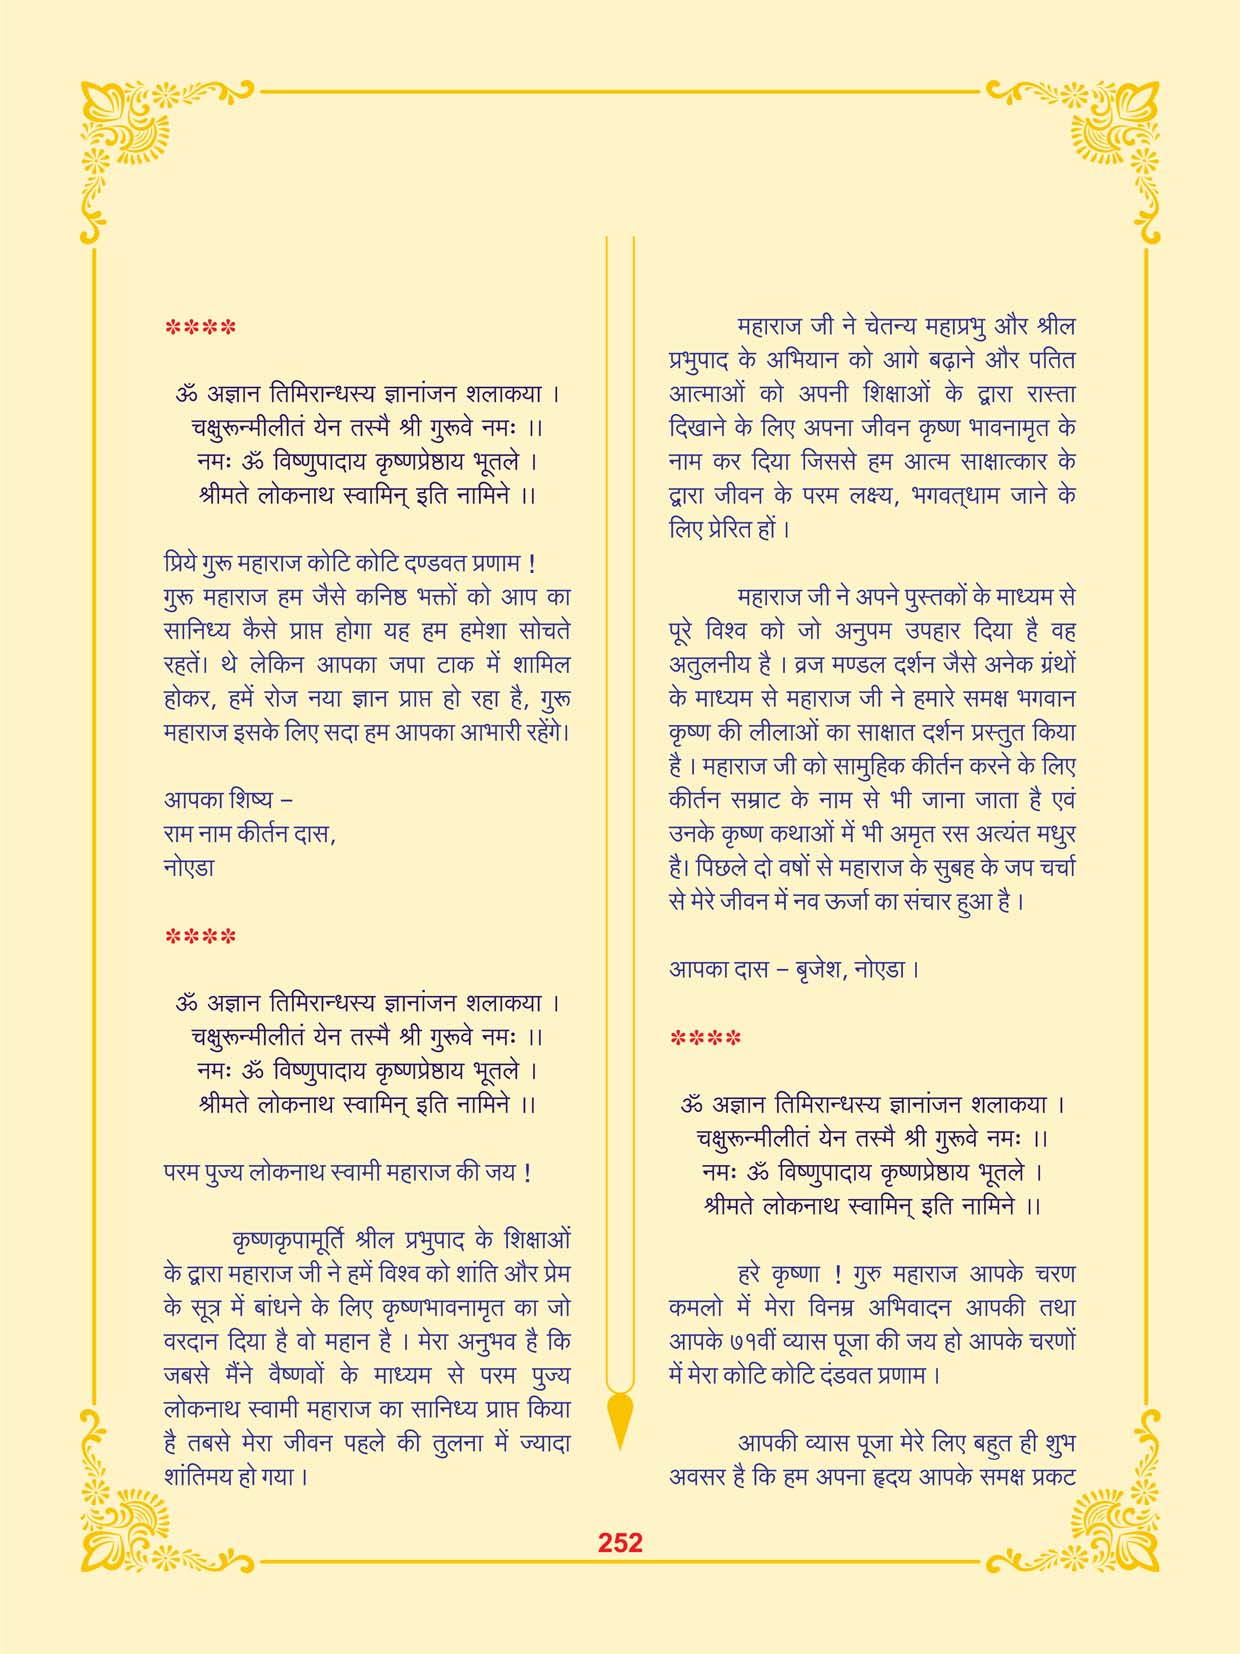 ****
ॐ अज्ञान तिमिरान्धस्य ज्ञानांजन शलाकया ।
चक्षुरून्मीलीतं येन तस्मै श्री गुरूवे नमः ।।
नमः ॐ विष्णुपादाय कृष्णप्रेष्ठाय भूतले ।
श्रीमते लोकनाथ स्वामिन् इति नामिने ।।
प्रिये गुरू महाराज कोटि कोटि दण्डवत प्रणाम !
गुरू महाराज हम जैसे कनिष्ठ भक्तों को आप का
सानिध्य कैसे प्राप्त होगा यह हम हमेशा सोचते
रहतें। थे लेकिन आपका जपा टाक में शामिल
होकर, हमें रोज नया ज्ञान प्राप्त हो रहा है, गुरू
महाराज इसके लिए सदा हम आपका आभारी रहेंगे।
आपका शिष्य –
राम नाम कीर्तन दास,
नोएडा
****
ॐ अज्ञान तिमिरान्धस्य ज्ञानांजन शलाकया ।
चक्षुरून्मीलीतं येन तस्मै श्री गुरूवे नमः ।।
नमः ॐ विष्णुपादाय कृष्णप्रेष्ठाय भूतले ।
श्रीमते लोकनाथ स्वामिन् इति नामिने ।।
परम पुज्य लोकनाथ स्वामी महाराज की जय !
कृष्णकृपामूर्ति श्रील प्रभुपाद के शिक्षाओं
के द्वारा महाराज जी ने हमें विश्व को शांति और प्रेम
के सूत्र में बांधने के लिए कृष्णभावनामृत का जो
वरदान दिया है वो महान है । मेरा अनुभव है कि
जबसे मैंने वैष्णवों के माध्यम से परम पुज्य
लोकनाथ स्वामी महाराज का सानिध्य प्राप्त किया
है तबसे मेरा जीवन पहले की तुलना में ज्यादा
शांतिमय हो गया ।
महाराज जी ने चेतन्य महाप्रभु और श्रील
प्रभुपाद के अभियान को आगे बढ़ाने और पतित
आत्माओं को अपनी शिक्षाओं के द्वारा रास्ता
दिखाने के लिए अपना जीवन कृष्ण भावनामृत के
नाम कर दिया जिससे हम आत्म साक्षात्कार के
द्वारा जीवन के परम लक्ष्य, भगवत्‌धाम जाने के
लिए प्रेरित हों ।
महाराज जी ने अपने पुस्तकों के माध्यम से
पूरे विश्व को जो अनुपम उपहार दिया है वह
अतुलनीय है । व्रज मण्डल दर्शन जैसे अनेक ग्रंथों
के माध्यम से महाराज जी ने हमारे समक्ष भगवान
कृष्ण की लीलाओं का साक्षात दर्शन प्रस्तुत किया
है । महाराज जी को सामुहिक कीर्तन करने के लिए
कीर्तन सम्राट के नाम से भी जाना जाता है एवं
उनके कृष्ण कथाओं में भी अमृत रस अत्यंत मधुर
है। पिछले दो वषों से महाराज के सुबह के जप चर्चा
से मेरे जीवन में नव ऊर्जा का संचार हुआ है ।
आपका दास – बृजेश, नोएडा ।
****
ॐ अज्ञान तिमिरान्धस्य ज्ञानांजन शलाकया ।
चक्षुरून्मीलीतं येन तस्मै श्री गुरूवे नमः ।।
नमः ॐ विष्णुपादाय कृष्णप्रेष्ठाय भूतले ।
श्रीमते लोकनाथ स्वामिन् इति नामिने ।।
हरे कृष्णा ! गुरु महाराज आपके चरण
कमलो में मेरा विनम्र अभिवादन आपकी तथा
आपके ७१वीं व्यास पूजा की जय हो आपके चरणों
में मेरा कोटि कोटि दंडवत प्रणाम ।
आपकी व्यास पूजा मेरे लिए बहुत ही शुभ
अवसर है कि हम अपना हृदय आपके समक्ष प्रकट
252